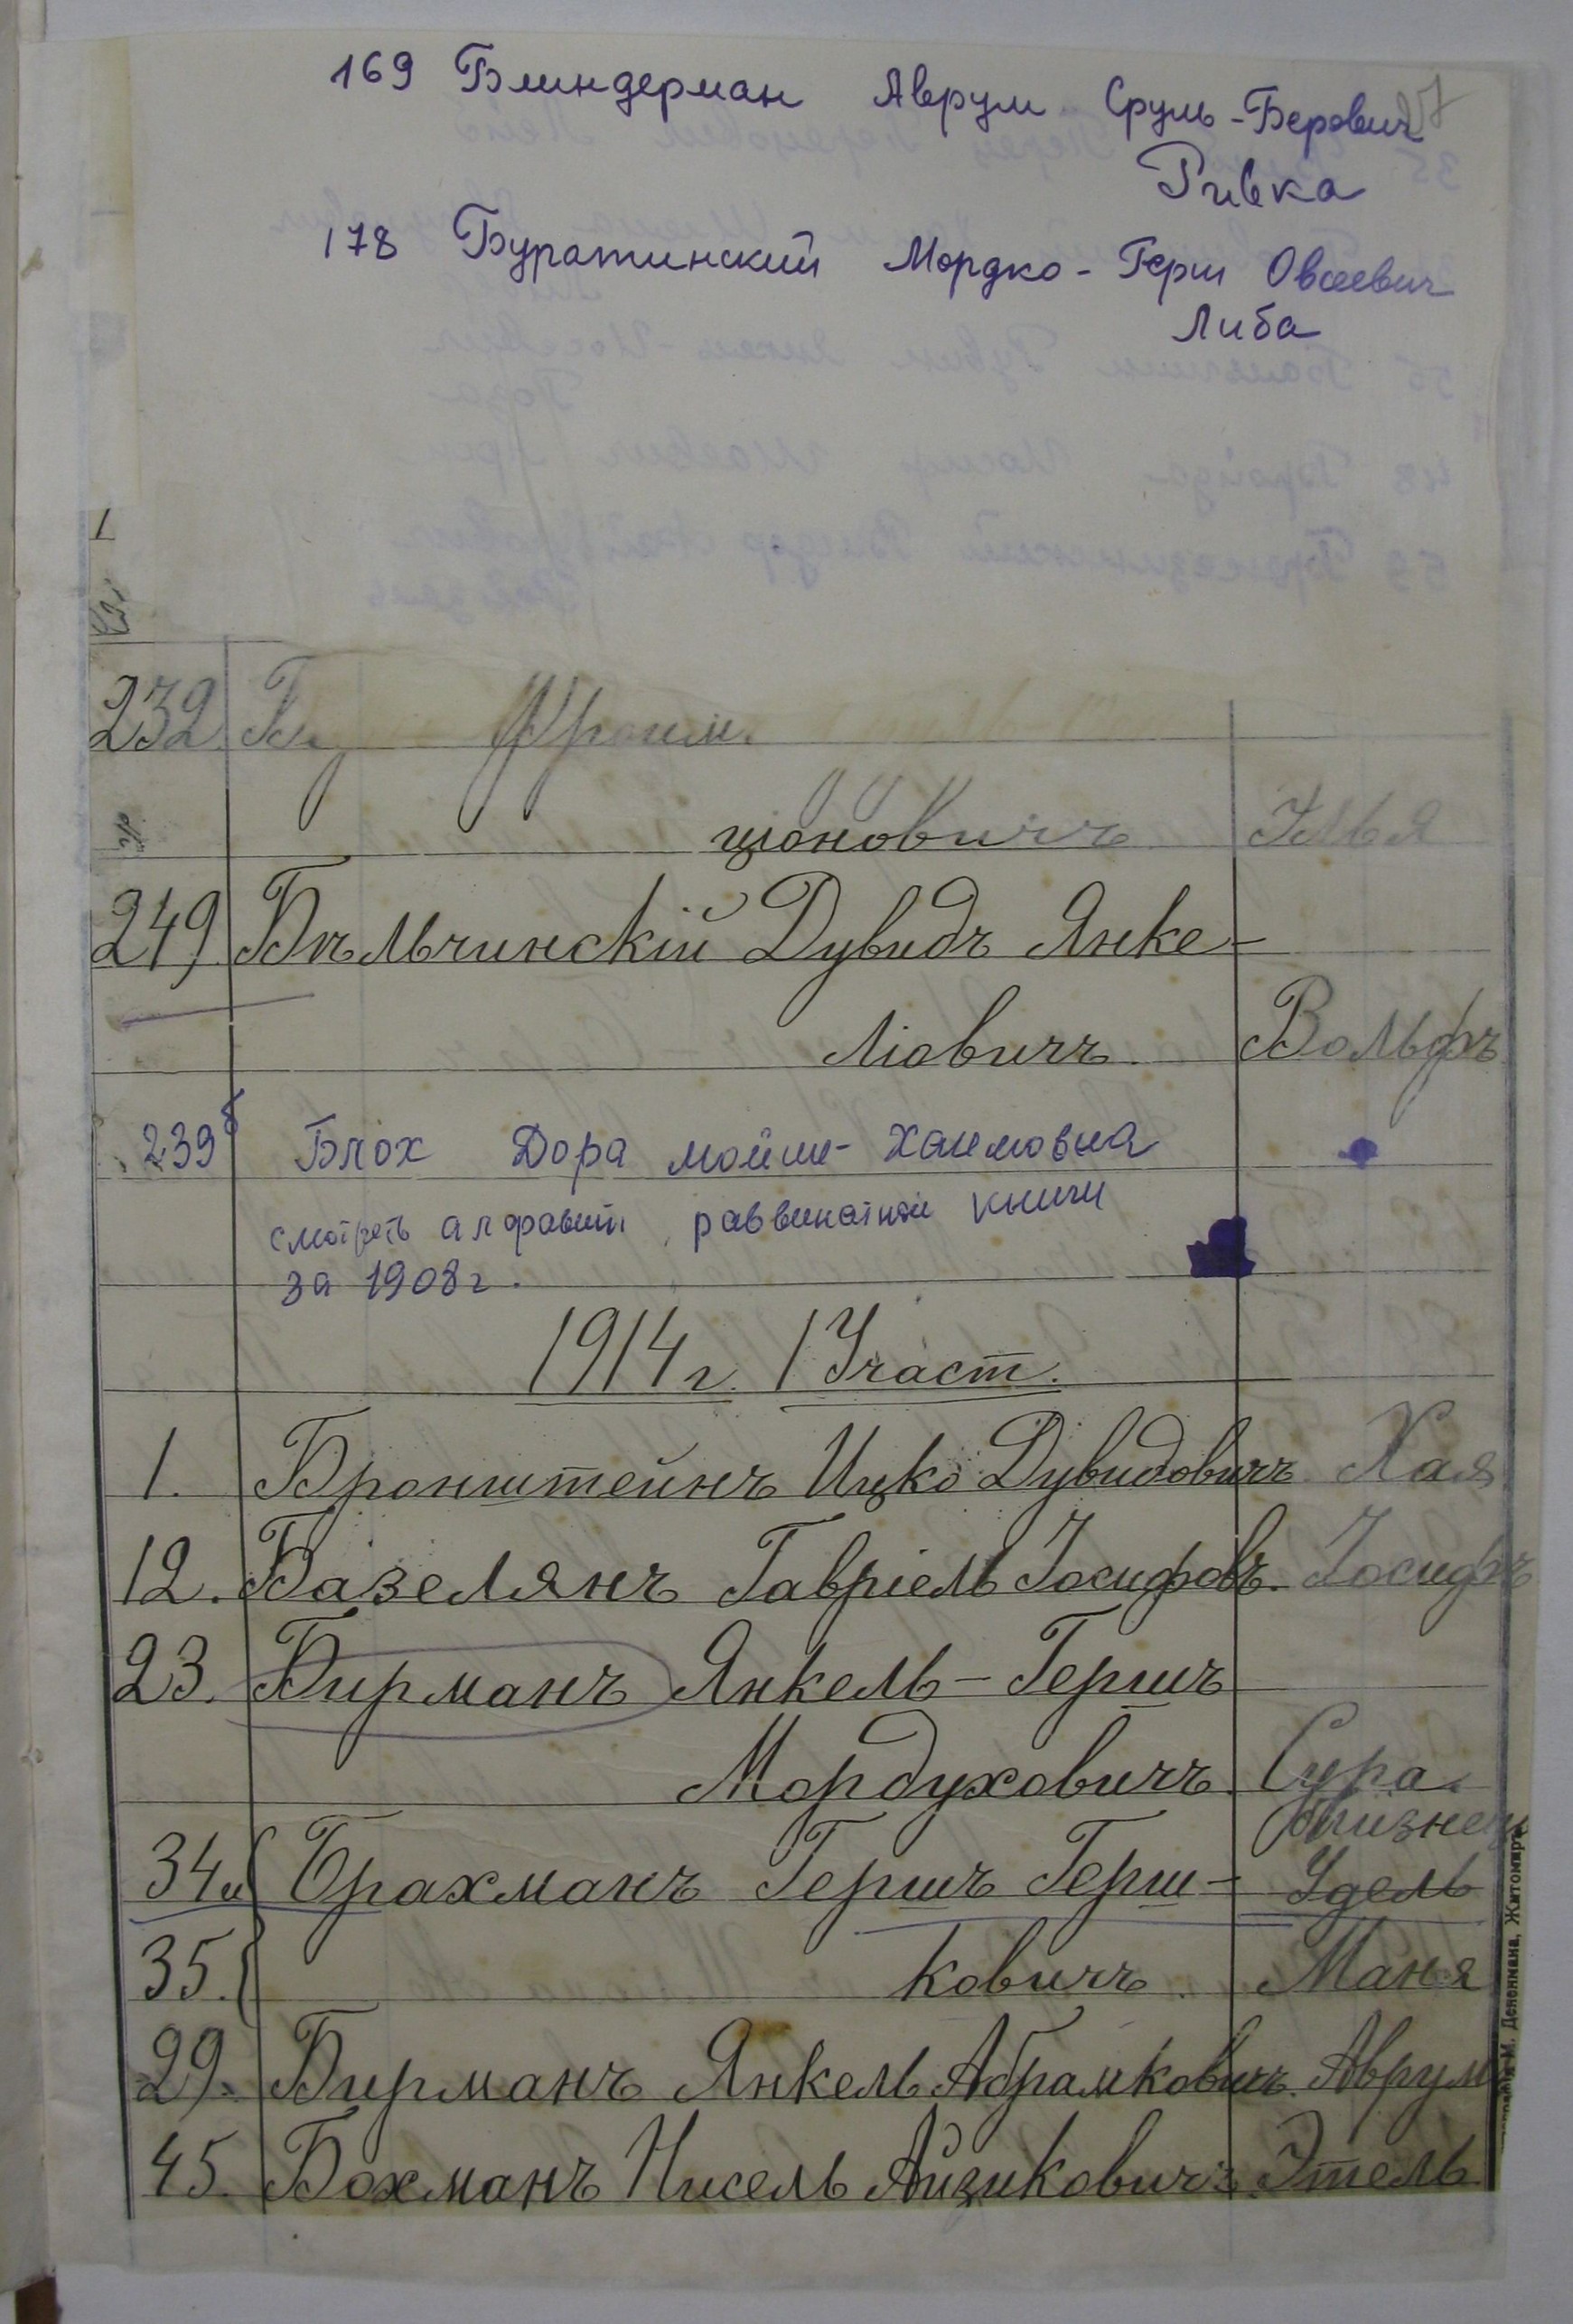 169 Блиндерман Аврум Сруль-Берович
Ривка
178 Буратинский Мордко-Герш Овсеевич
Либа
232. Фроим.
ціоновичъ Илья
249 Бѣльчинскій Дувидъ Янке-
ліовичъ. Вольфъ
239б Блох Дора Мойше-Хаимовна
смотреть алфавит раввинатной книги
за 1908 г.
1914 г. 1 Участ.
1. Бронштейнъ Ицко Дувидовичъ. Хая
12. Базелянъ Гавріель Іосифовъ. Іосифъ
23. Бирманъ Янкель-Гершъ
Мордуховичъ. Сура.
близнец
34 и Брахманъ Гершъ Герш- Удель
35. ковичъ. Маня
29. Бирманъ Янкель Абрамковичъ. Аврум
45. Бохманъ Нисель Айзиковичъ. Этель
М. Дененмана, Житомиръ